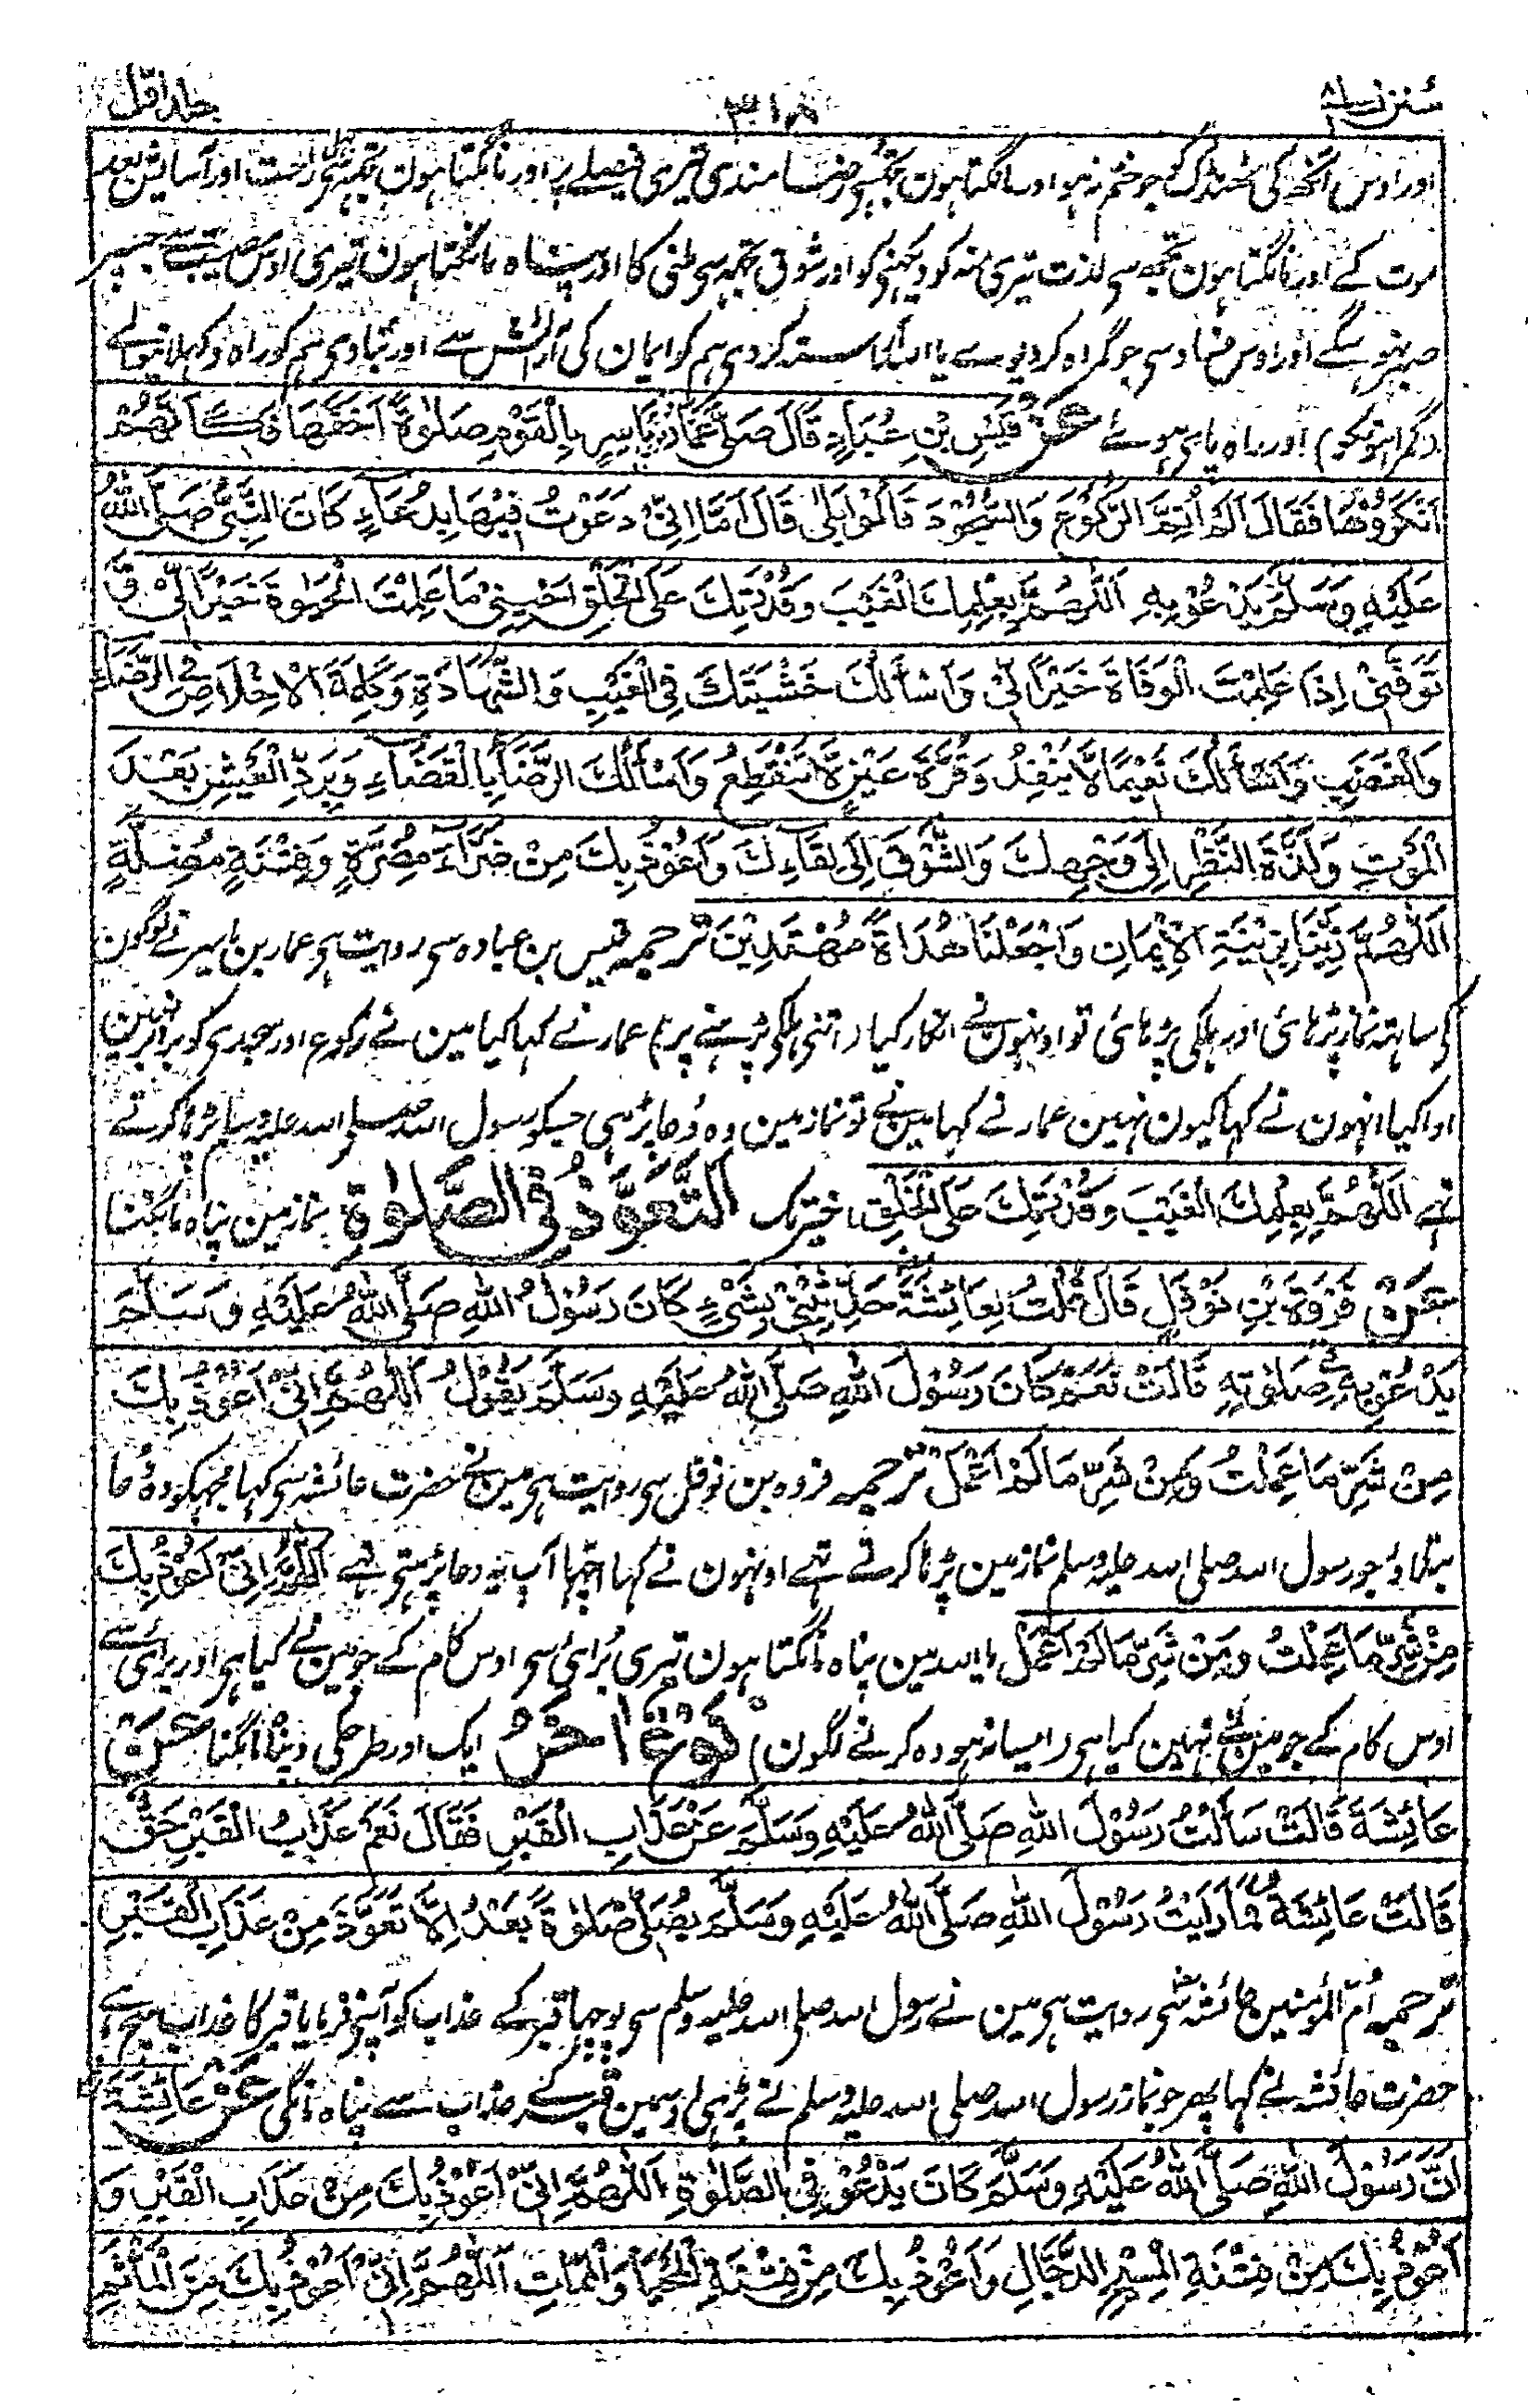 سنن نسائی ۳۱۸ جلد اوّل
اور اوس آنکھ کی ٹھنڈک کو جو ختم نہو اور مانگتا ہون تجھسے رضامندی تیری فیصلے پر اور مانگتا ہون تجھسے راحت اور آسایش بعد
موت کے اور مانگتا ہون تجھ سی لذت تیری منہ کو دیکھنی کو اور شوق تجھ سی ملنی کا اور پناہ مانگتا ہون تیری اوس مصیبت سے جسپر
صبر نہو سکے اور اوس فساد سی جو گمراہ کر دیوے یا اللہ آراستہ کر دی ہم کو ایمان کی آرائش سے اور بنا دی ہم کو راہ دکھلانیوالے
اور راہ پائی ہوئے عَنْ قَيْسِ بْنِ عُبَادٍ قَالَ صَلّٰى عَمَّارُ بْنُ يَاسِرٍ بِالْقَوْمِ صَلٰوةً اَخَفَّهَا فَكَاَنَّهُمْ
اَنْكَرُوْهَا فَقَالَ اَلَمْ اُتِمَّ الرُّكُوْعَ وَالسُّجُوْدَ قَالُوْا بَلٰى قَالَ اَمَّا اِنِّيْ دَعَوْتُ فِيْهَا بِدُعَاءٍ كَانَ النَّبِيُّ صَلَّى اللّٰهُ
عَلَيْهِ وَسَلَّمَ يَدْعُوْ بِهِ اَللّٰهُمَّ بِعِلْمِكَ الْغَيْبَ وَقُدْرَتِكَ عَلَى الْخَلْقِ اَحْيِنِيْ مَا عَلِمْتَ الْحَيٰوةَ خَيْرًا لِّيْ وَ
تَوَفَّنِيْ اِذَا عَلِمْتَ الْوَفَاةَ خَيْرًا لِّيْ وَاَسْأَلُكَ خَشْيَتَكَ فِي الْغَيْبِ وَالشَّهَادَةِ وَكَلِمَةَ الْاِخْلَاصِ فِي الرِّضَاءِ
وَالْغَضَبِ وَاَسْأَلُكَ نَعِيْمًا لَّا يَنْفَدُ وَقُرَّةَ عَيْنٍ لَّا تَنْقَطِعُ وَاَسْأَلُكَ الرِّضَاءَ بِالْقَضَاءِ وَبَرْدَ الْعَيْشِ بَعْدَ
الْمَوْتِ وَلَذَّةَ النَّظَرِ اِلٰى وَجْهِكَ وَالشَّوْقَ اِلٰى لِقَاءِكَ وَاَعُوْذُ بِكَ مِنْ ضَرَّاءَ مُضِرَّةٍ وَفِتْنَةٍ مُضِلَّةٍ
اَللّٰهُمَّ زَيِّنَّا بِزِيْنَةِ الْاِيْمَانِ وَاجْعَلْنَا هُدَاةً مُهْتَدِيْنَ ترجمہ قیس بن عبادہ سی روایت ہی عمار بن یاسر نے لوگون
کی ساتھ نماز پڑھائی اور ہلکی پڑھائی تو اونہون نے انکار کیا (اتنی ہلکی پڑہنے پر) عمار نے کہا کیا مین نے رکوع اور سجدی کو برابر نہین
ادا کیا انہون نے کہا کیون نہین عمار نے کہا مین نے تو نماز مین وہ دعا پڑہی جسکو رسول اللہ صلی اللہ علیہ وسلم پڑہا کرتے
تہے اَللّٰهُمَّ بِعِلْمِكَ الْغَيْبَ وَقُدْرَتِكَ عَلَى الْخَلْقِ اخیر تک اَلتَّعَوُّذُ فِي الصَّلٰوةِ نماز مین پناہ مانگنا
عَنْ فَرْوَةَ بْنِ نَوْفَلٍ قَالَ قُلْتُ لِعَائِشَةَ حَدِّثِيْنِيْ بِشَيْءٍ كَانَ رَسُوْلُ اللّٰهِ صَلَّى اللّٰهُ عَلَيْهِ وَسَلَّمَ
يَدْعُوْ بِهِ فِي صَلٰوتِهِ قَالَتْ نَعَمْ كَانَ رَسُوْلُ اللّٰهِ صَلَّى اللّٰهُ عَلَيْهِ وَسَلَّمَ يَقُوْلُ اَللّٰهُمَّ اِنِّيْ اَعُوْذُ بِكَ
مِنْ شَرِّ مَا عَمِلْتُ وَمِنْ شَرِّ مَا لَمْ اَعْمَلْ ترجمہ فروہ بن نوفل سی روایت ہی مین نے حضرت عائشہ سی کہا مجہکو وہ دُعا
بتلاؤ جو رسول اللہ صلی اللہ علیہ وسلم نماز مین پڑہا کرتے تہے اونہون نے کہا اچہا آپ یہ دعا پڑہتے تہے اَللّٰهُمَّ اِنِّيْ اَعُوْذُ بِكَ
مِنْ شَرِّ مَا عَمِلْتُ وَمِنْ شَرِّ مَا لَمْ اَعْمَلْ یا اللہ مین پناہ مانگتا ہون تیری بُرائی سی اوس کام کے جو مین نے کیا ہی اور برائی سے
اوس کام کے جو مین نے نہین کیا ہی (ایسا نہو وہ کرنے لگون) نَوْعٌ اٰخَرُ ایک اور طرحکی پناہ مانگنا عَنْ
عَائِشَةَ قَالَتْ سَأَلْتُ رَسُوْلَ اللّٰهِ صَلَّى اللّٰهُ عَلَيْهِ وَسَلَّمَ عَنْ عَذَابِ الْقَبْرِ فَقَالَ نَعَمْ عَذَابُ الْقَبْرِ حَقٌّ
قَالَتْ عَائِشَةُ فَمَا رَاَيْتُ رَسُوْلَ اللّٰهِ صَلَّى اللّٰهُ عَلَيْهِ وَسَلَّمَ يُصَلِّيْ صَلٰوةً بَعْدُ اِلَّا تَعَوَّذَ مِنْ عَذَابِ الْقَبْرِ
ترجمہ اُمّ المؤمنین عائشہ سی روایت ہی مین نے رسول اللہ صلی اللہ علیہ وسلم سی پوچہا قبر کے عذاب کو آپنی فرمایا قبر کا عذاب سچ ہے
حضرت عائشہ نے کہا پہر جو نماز رسول اللہ صلی اللہ علیہ وسلم نے پڑہی اوسمین قبر کے عذاب سے پناہ مانگی عَنْ عَائِشَةَ
اَنَّ رَسُوْلَ اللّٰهِ صَلَّى اللّٰهُ عَلَيْهِ وَسَلَّمَ كَانَ يَدْعُوْ فِي الصَّلٰوةِ اَللّٰهُمَّ اِنِّيْ اَعُوْذُ بِكَ مِنْ عَذَابِ الْقَبْرِ وَ
اَعُوْذُ بِكَ مِنْ فِتْنَةِ الْمَسِيْحِ الدَّجَّالِ وَاَعُوْذُ بِكَ مِنْ فِتْنَةِ الْمَحْيَا وَالْمَمَاتِ اَللّٰهُمَّ اِنِّيْ اَعُوْذُ بِكَ مِنَ الْمَأْثَمِ